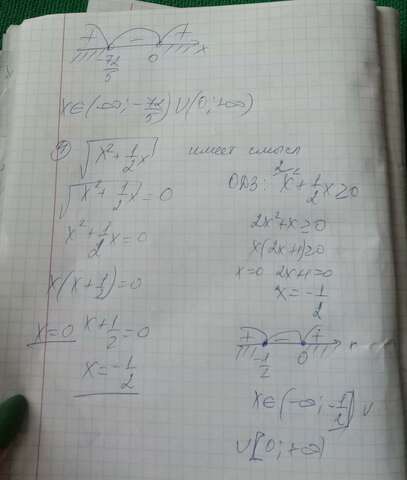 + - +
-72/5 0 x
x∈(-∞; -72/5) ∪ (0; +∞)
√(x² + 1/2 x) имеет смысл
√(x² + 1/2 x) = 0
x² + 1/2 x = 0
x(x + 1/2) = 0
x = 0 x + 1/2 = 0
x = -1/2
ОДЗ: x² + 1/2 x ≥ 0
2x² + x ≥ 0
x(2x+1) ≥ 0
x=0 2x+1=0
x = -1/2
+ - +
-1/2 0 x
x∈(-∞; -1/2] ∪
∪ [0; +∞)